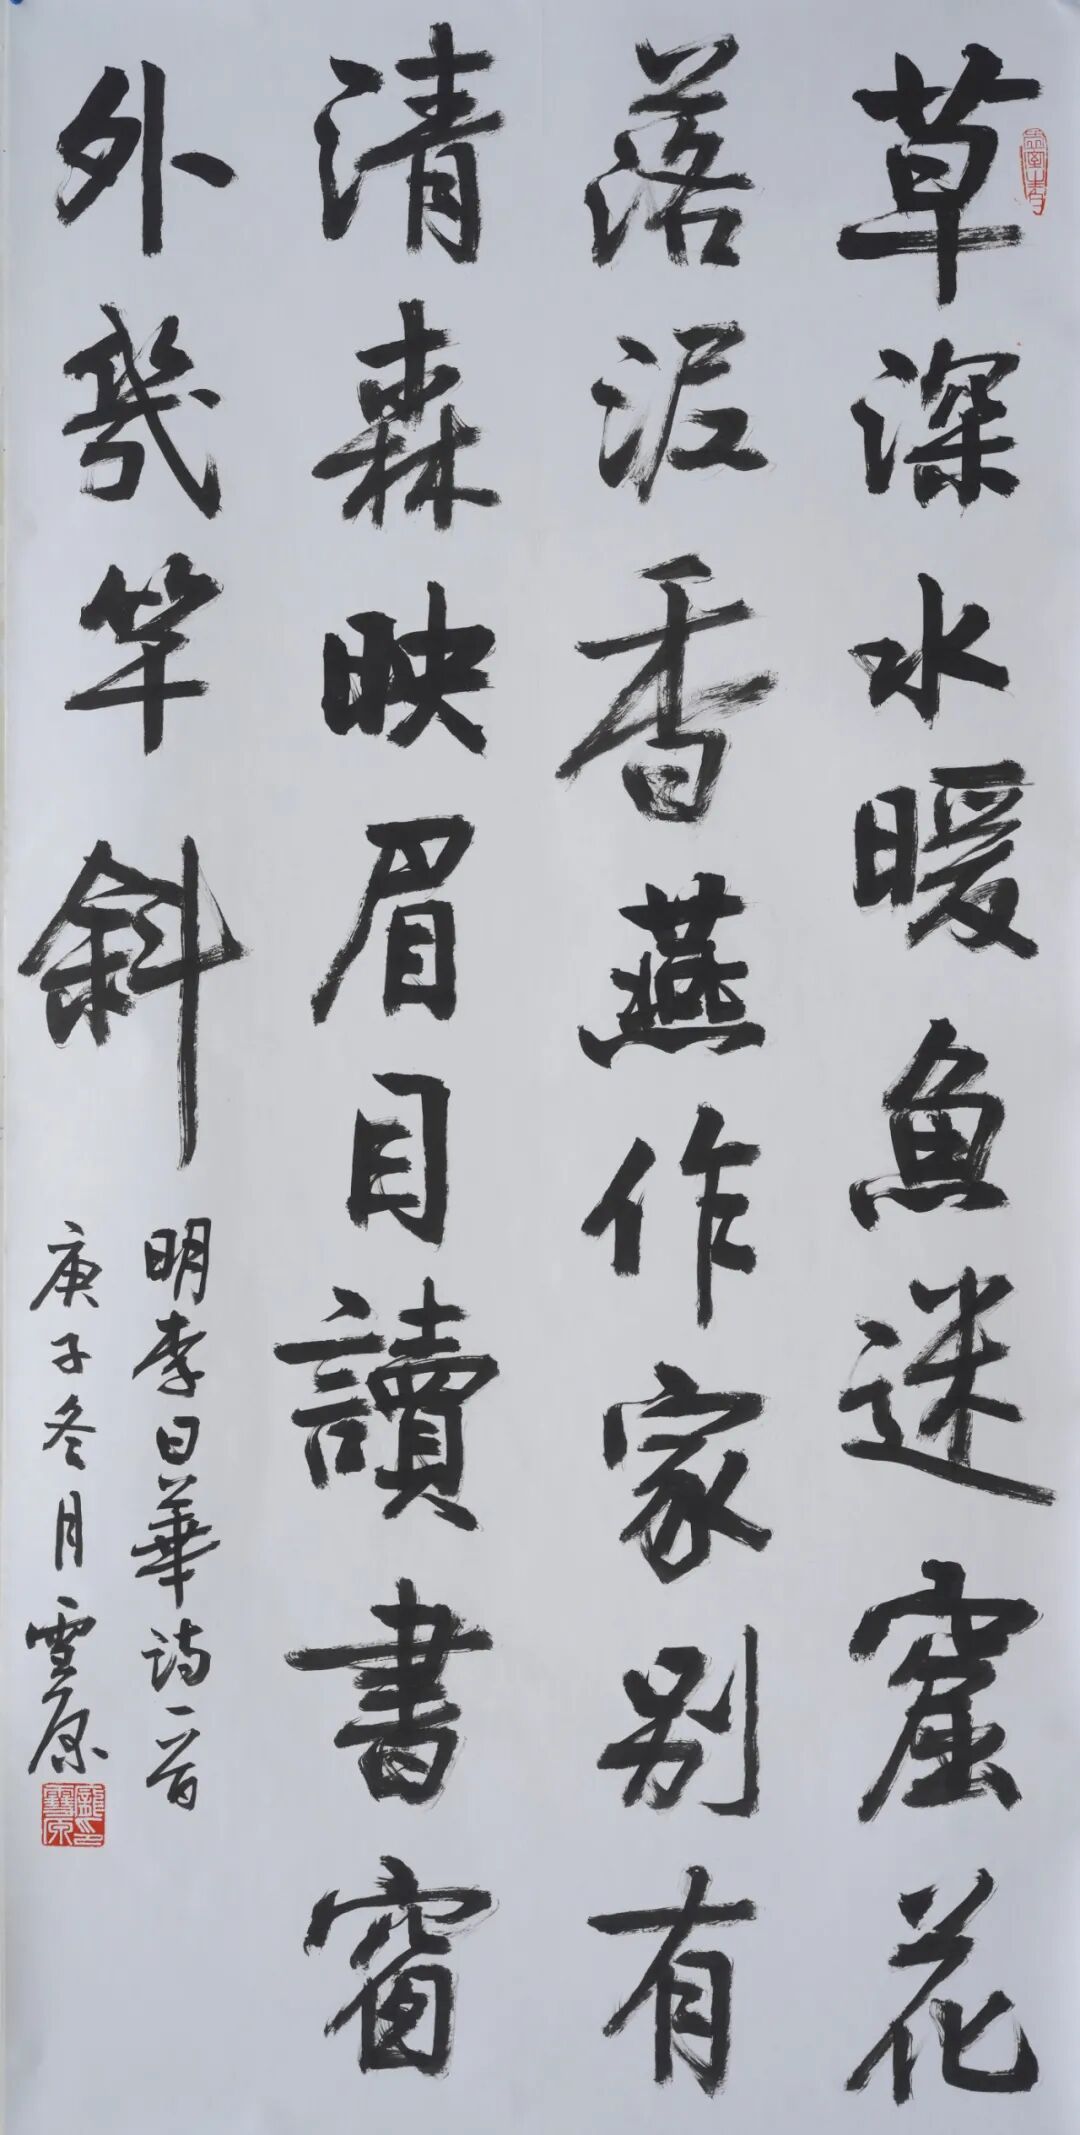 草深水暖魚迷窟花
落泥香燕作家别有
清森映眉目讀書窗
外幾竿斜
明李日華詩一首
庚子冬月雪原